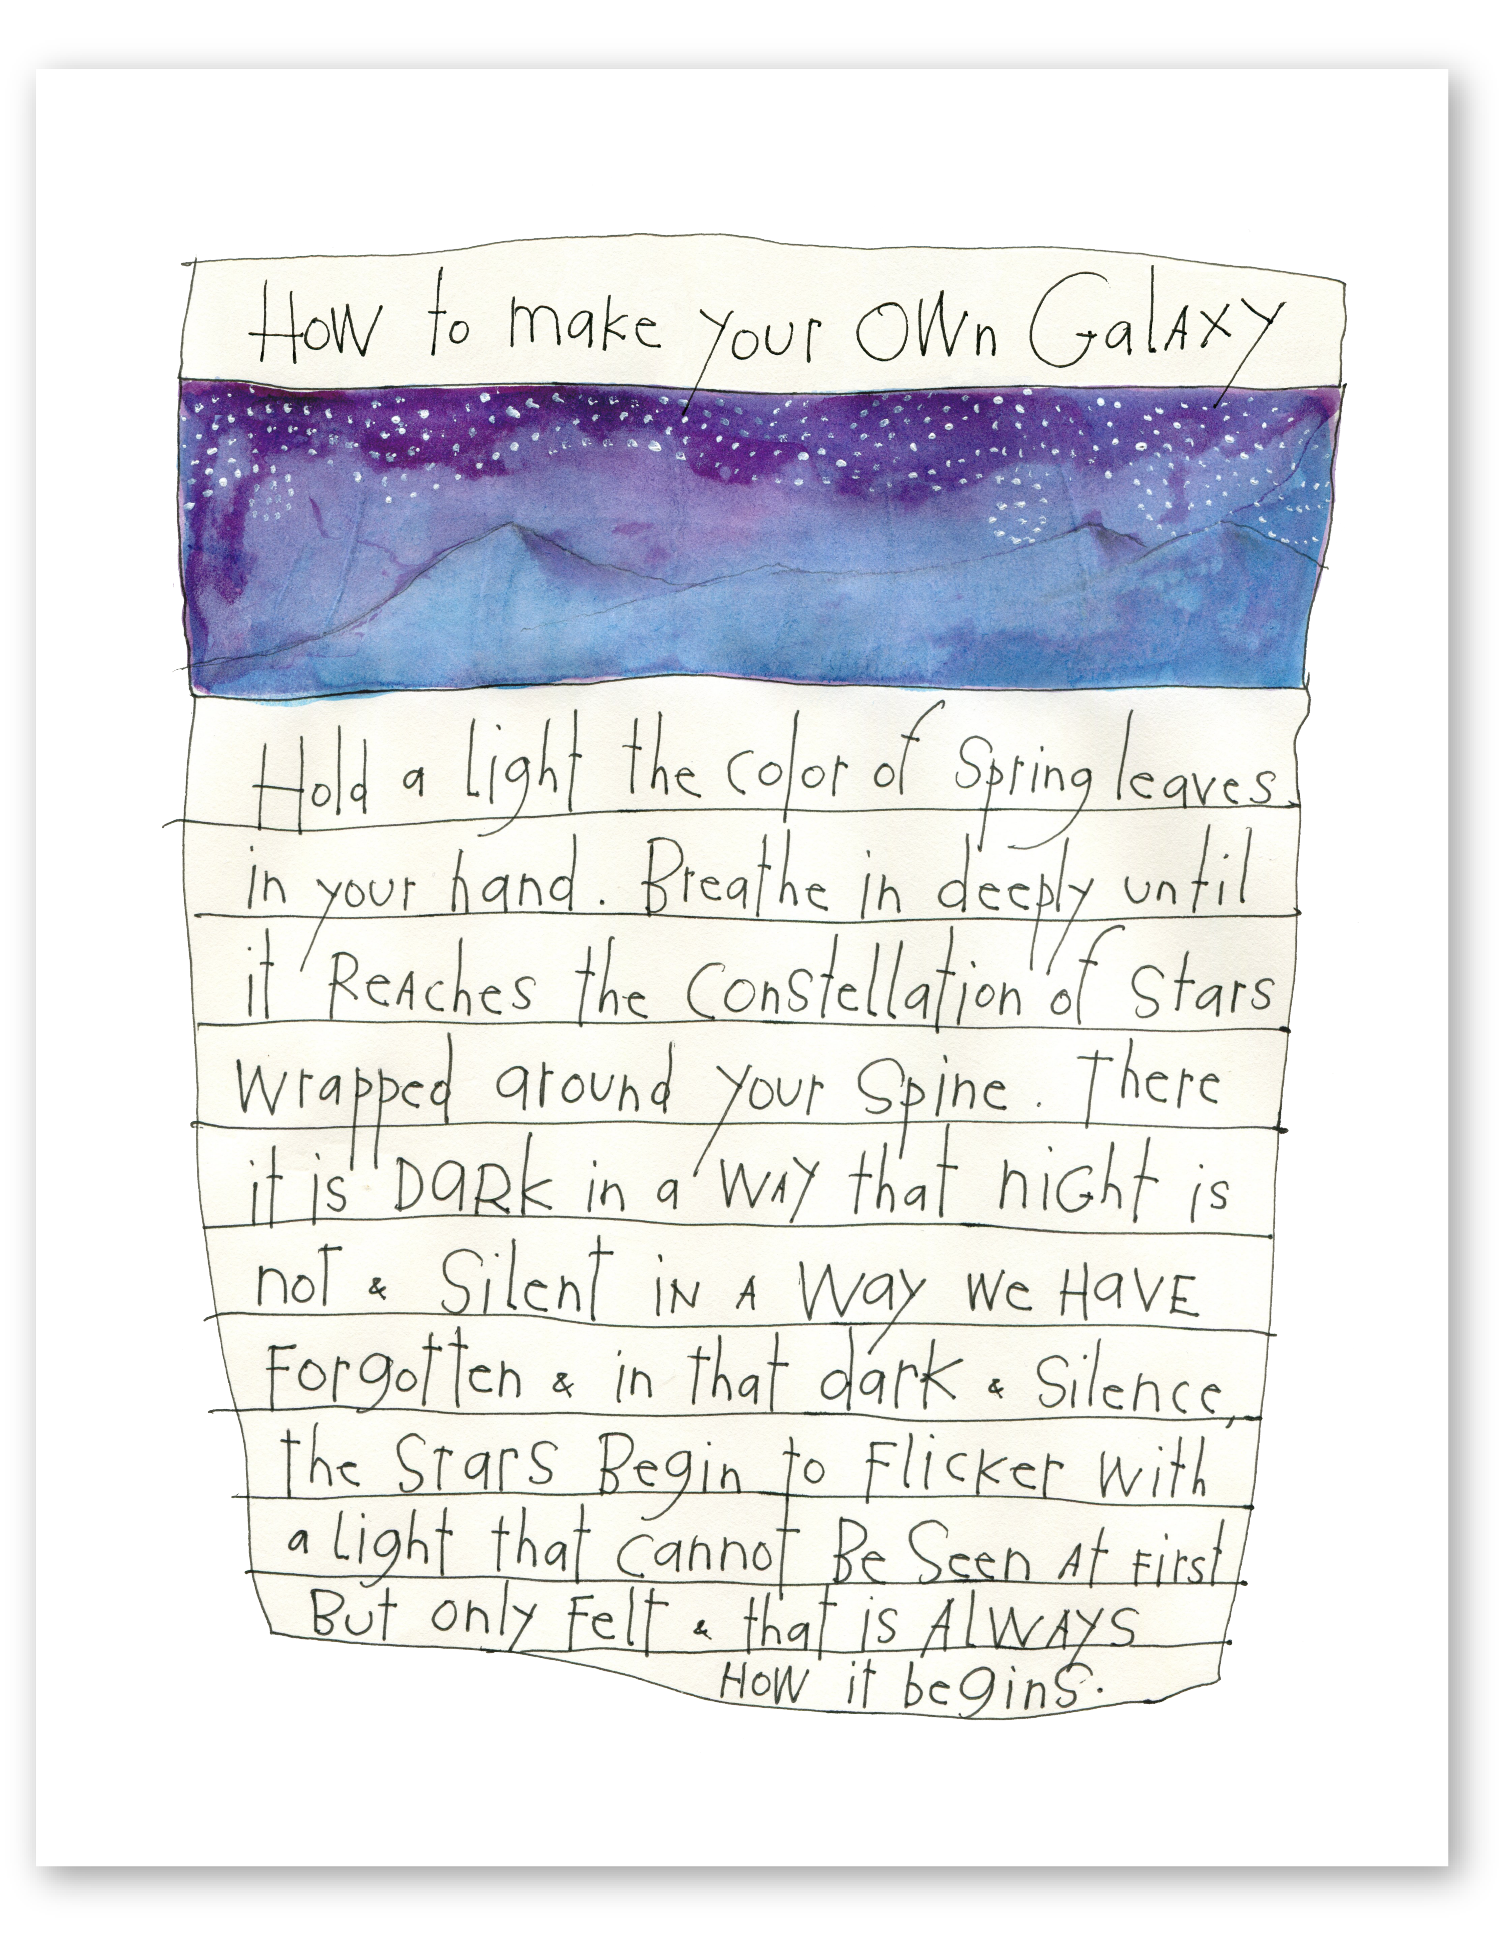 How to make your OWn GalAxy
Hold a light the color of Spring leaves
in your hand. Breathe in deeply until
it ReAches the Constellation of Stars
wrapped around your Spine. There
it is DARk in a WAY that niGht is
not & Silent iN A Way We HaVE
Forgotten & in that dark & Silence,
the StarS Begin to FlicKer With
a light that cannot Be Seen At First
But only Felt & that is AlWAYS
HOW it begins.